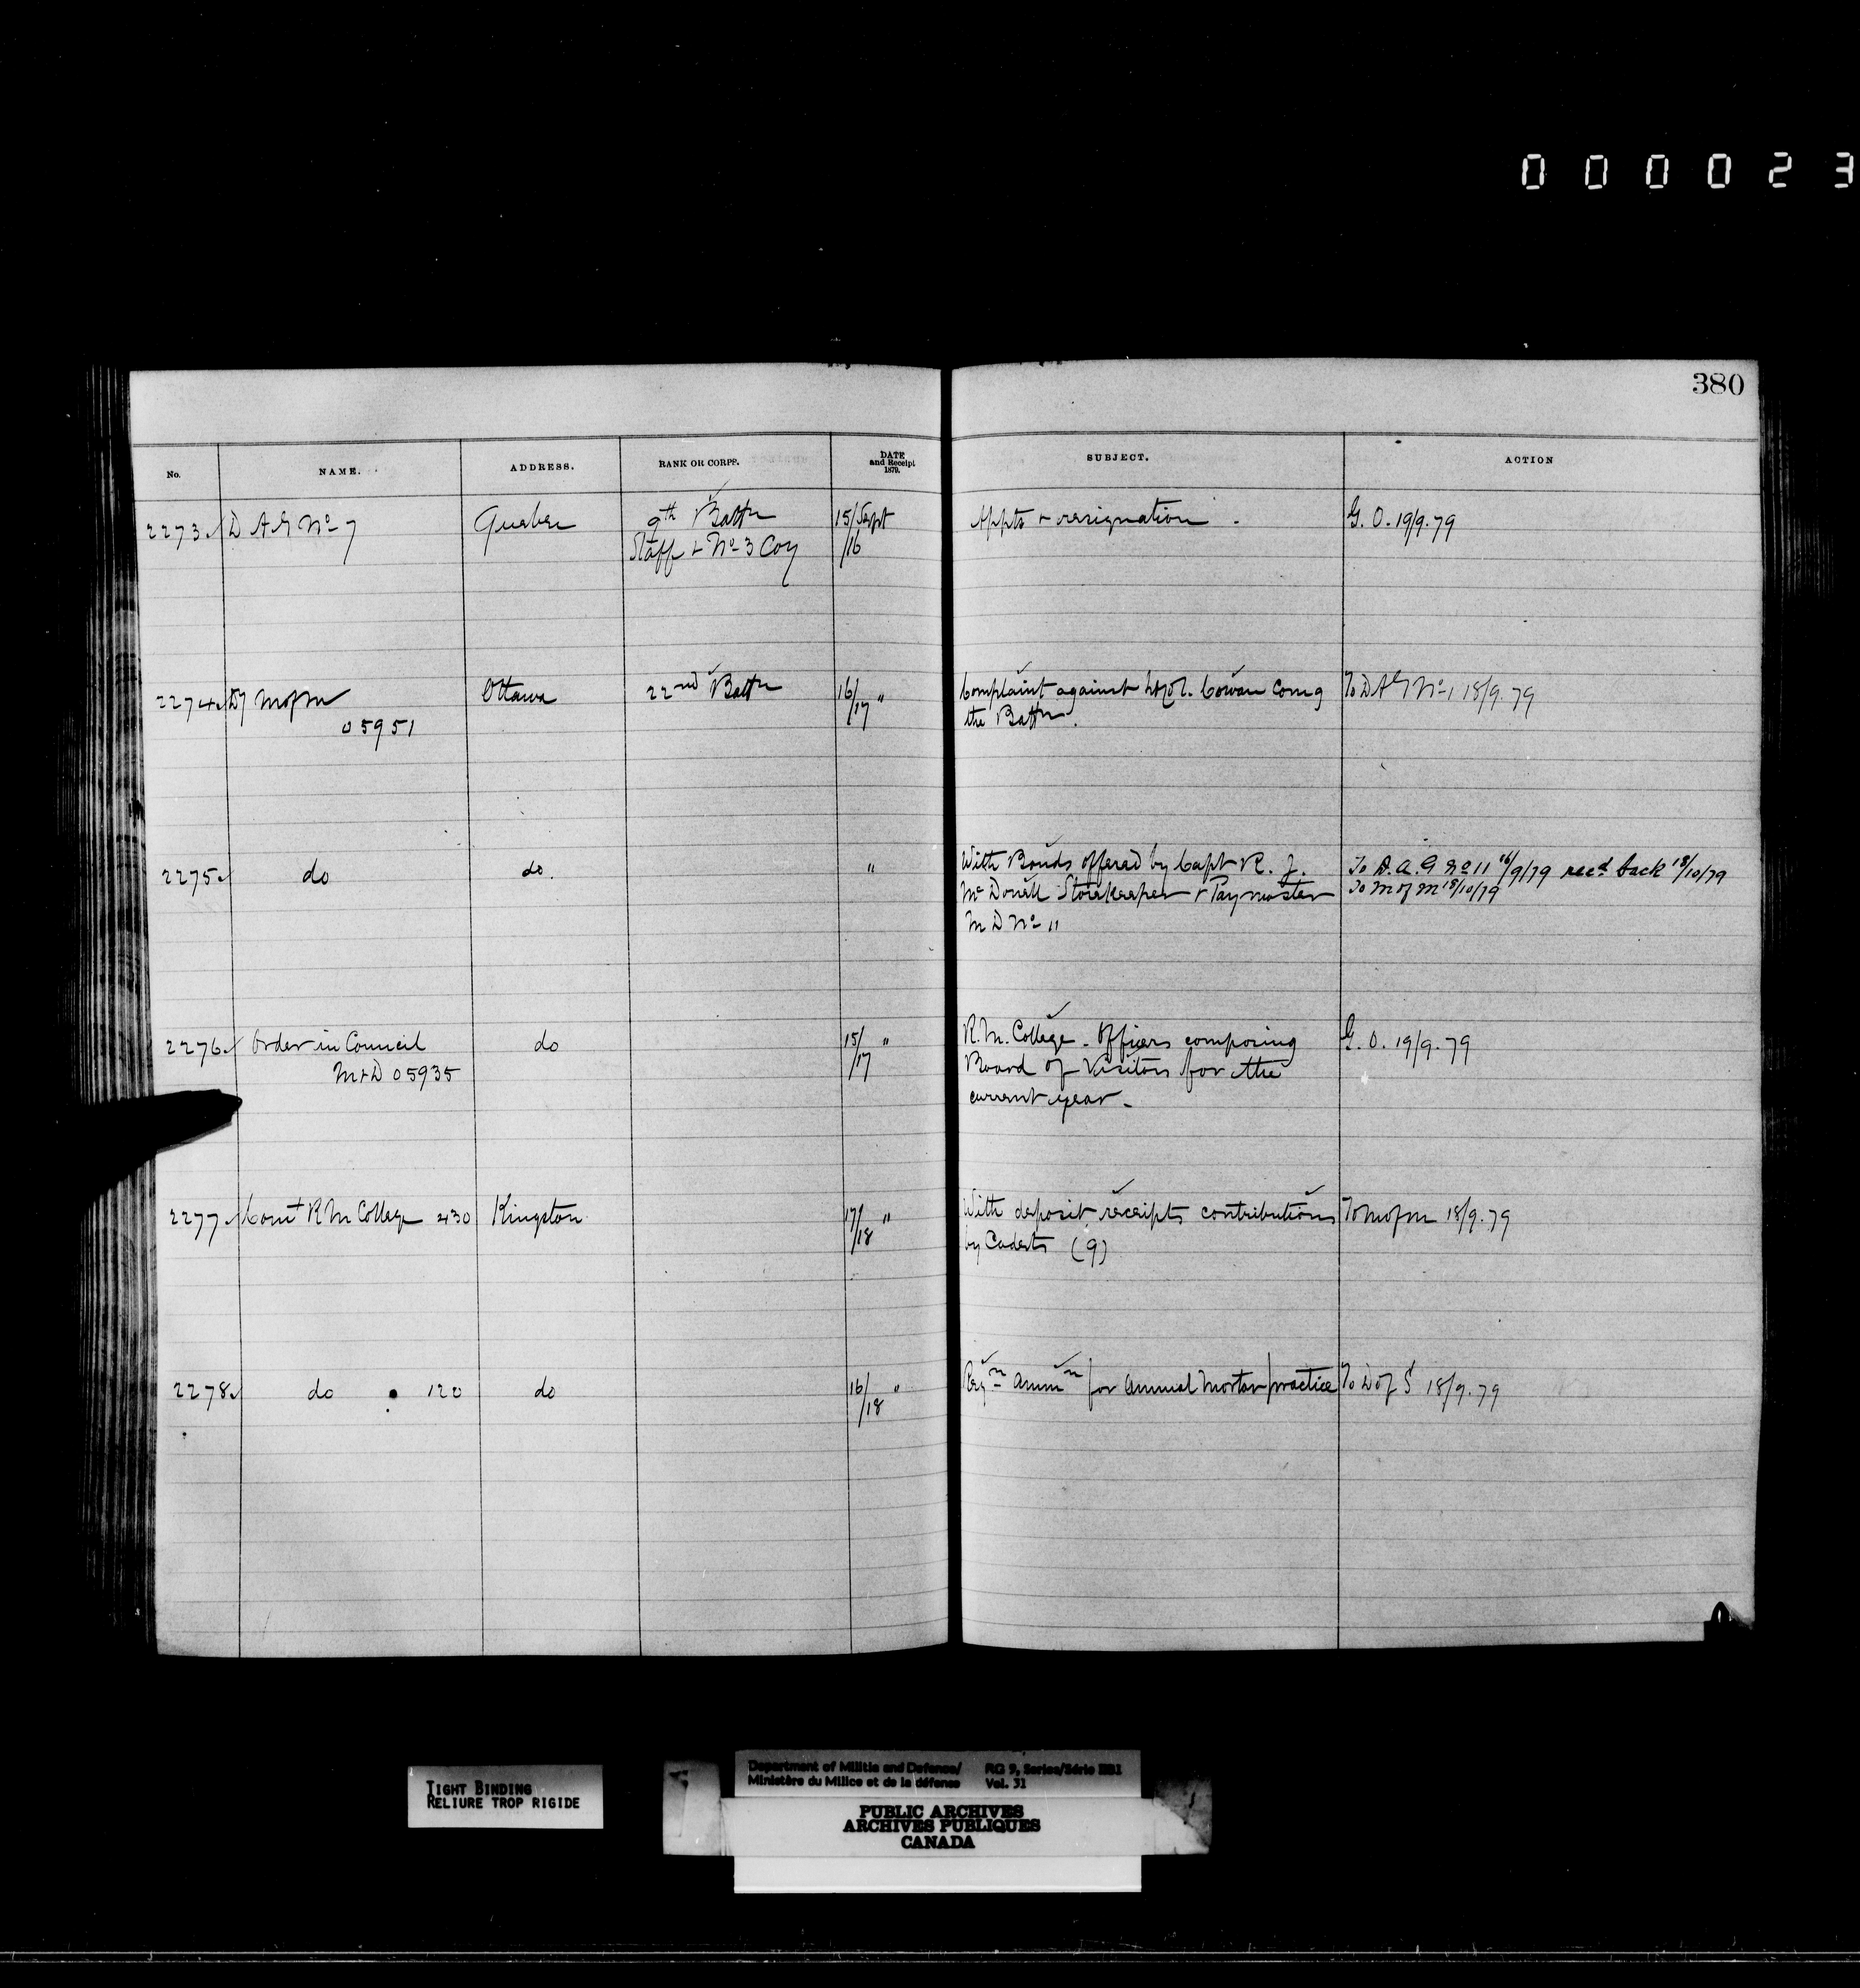 0 0 0 0 2 3
380
No. NAME. ADDRESS. RANK OR CORPP. DATE and Receipt 1879. SUBJECT. ACTION
2273 D A G No 7 Quebec 9th Battn 15/Sept Appts + resignation. G. O. 19/9.79
Staff + No 3 Coy /16
2274 Dy M of M Ottawa 22nd Battn 16/17 " Complaint against Lt Col. Cowan Comg To D A G No 1 18/9.79
05951 the Battn.
2275 do do. " With Bonds offered by Capt R. J. To D. A. G No 11 16/9/79 recd back 18/10/79
McDonell Storekeeper + Paymaster To M of M 18/10/79
M D No 11
2276 Order in Council do 15/17 " R. M. College - Officers composing G. O. 19/9.79
M+D 05935 Board of Visitors for the
current year -
2277 Comt R M College 430 Kingston 17/18 " With deposit receipts contributions To M of M 18/9.79
by Cadets (9)
2278 do 120 do 16/18 " Reqn Ammn for Annual Mortar practice To D of S 18/9.79
TIGHT BINDING
RELIURE TROP RIGIDE
Department of Militia and Defence/ RG 9, Series/Série IIB1
Ministère du Milice et de la défense Vol. 31
PUBLIC ARCHIVES
ARCHIVES PUBLIQUES
CANADA